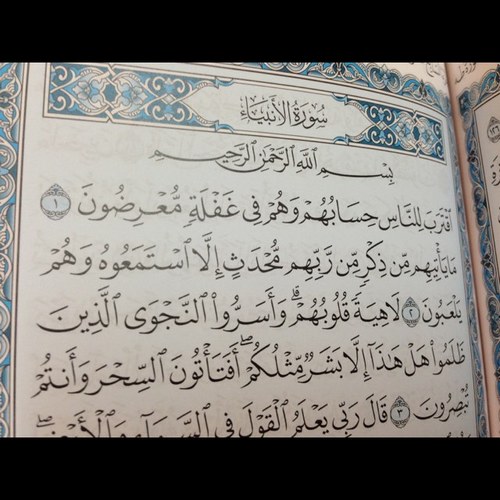 سُورَةُ الأَنبِيَاءِ
بِسْمِ اللَّهِ الرَّحْمَٰنِ الرَّحِيمِ
ٱقْتَرَبَ لِلنَّاسِ حِسَابُهُمْ وَهُمْ فِى غَفْلَةٍ مُّعْرِضُونَ ١
مَا يَأْتِيهِم مِّن ذِكْرٍ مِّن رَّبِّهِم مُّحْدَثٍ إِلَّا ٱسْتَمَعُوهُ وَهُمْ
يَلْعَبُونَ ٢ لَاهِيَةً قُلُوبُهُمْ ۗ وَأَسَرُّوا۟ ٱلنَّجْوَى ٱلَّذِينَ
ظَلَمُوا۟ هَلْ هَٰذَآ إِلَّا بَشَرٌ مِّثْلُكُمْ ۖ أَفَتَأْتُونَ ٱلسِّحْرَ وَأَنتُمْ
تُبْصِرُونَ ٣ قَالَ رَبِّى يَعْلَمُ ٱلْقَوْلَ فِى ٱلسَّمَآءِ وَٱلْأَرْضِ ۖ